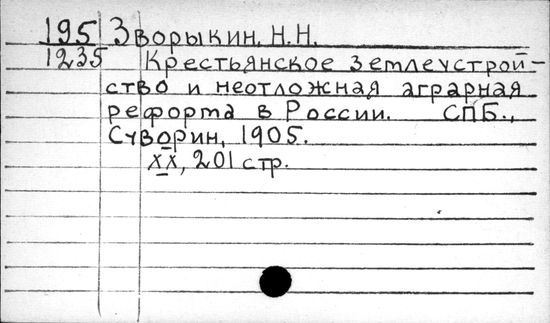 195 Зворыкин, Н.Н.
1235 Крестьянское землеустрой-
ство и неотложная аграрная
реформа в России. СПБ.,
Суворин, 1905.
XX, 201 стр.